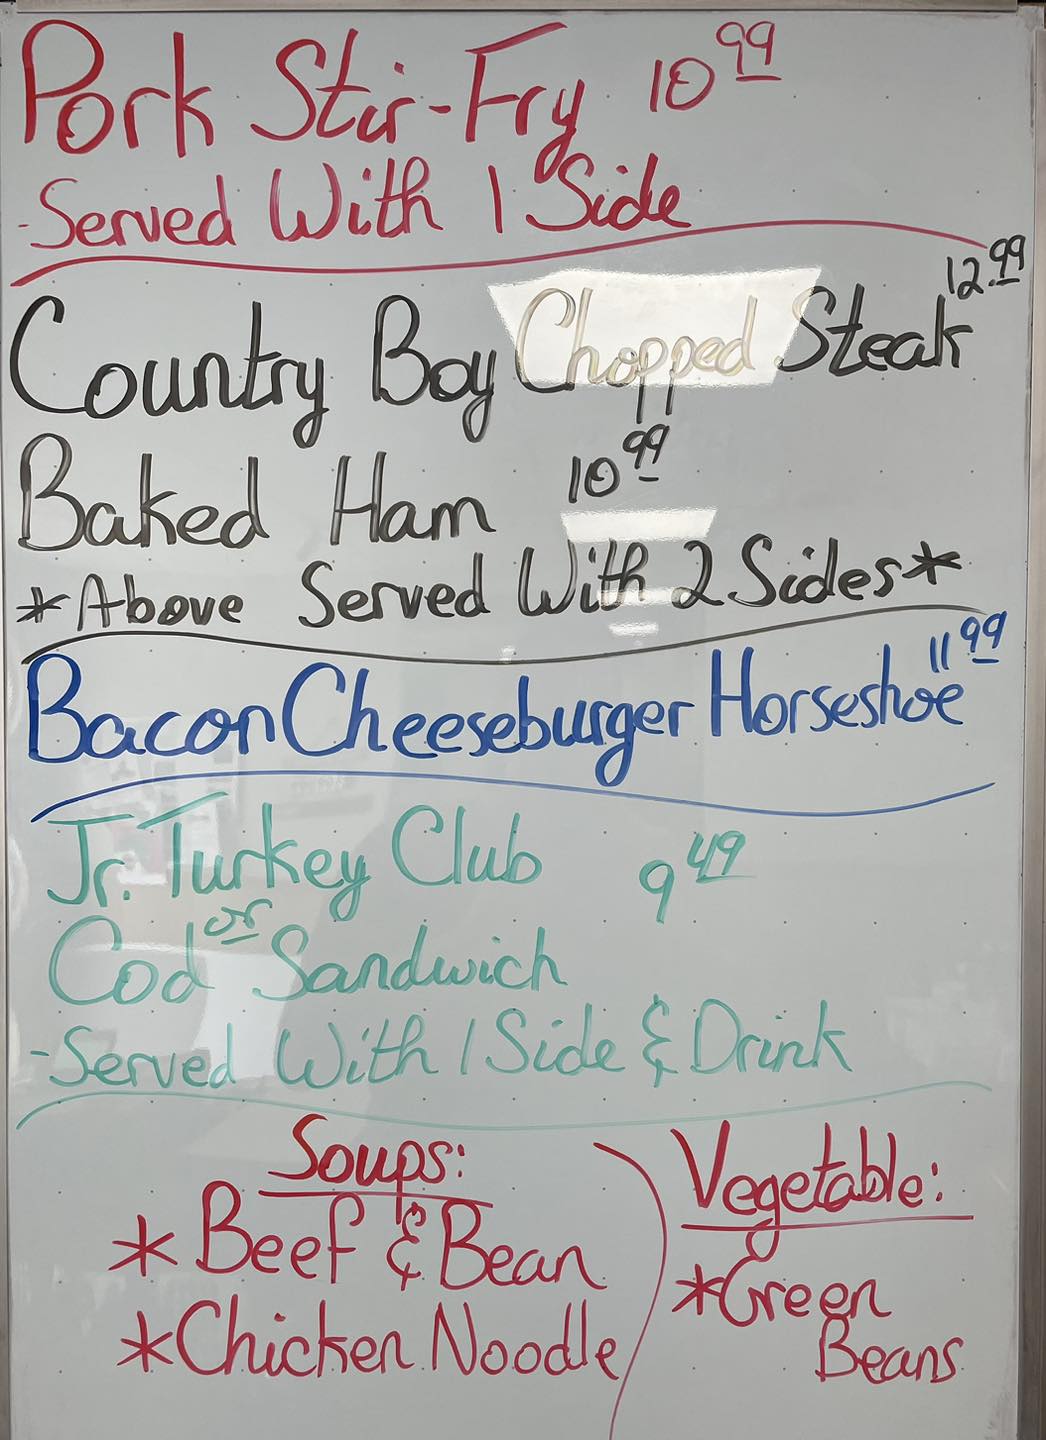 Pork Stir-Fry 10 99
-Served With 1 Side
Country Boy Chopped Steak 12.99
Baked Ham 10 99
*Above Served With 2 Sides*
Bacon Cheeseburger Horseshoe 11 99
Jr. Turkey Club 9 49
or
Cod Sandwich
-Served With 1 Side & Drink
Soups:
*Beef & Bean
*Chicken Noodle
Vegetable:
*Green
Beans